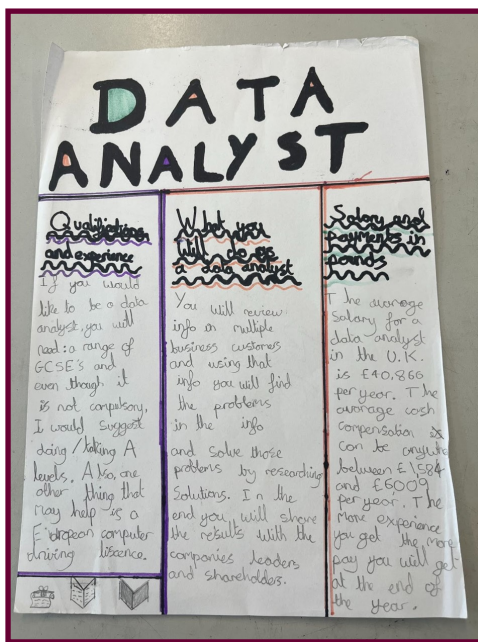 DATA
ANALYST
Qualifications
and experience
If you would
like to be a data
analyst, you will
need: a range of
GCSE's and
even though it
is not compulsory,
I would suggest
doing/taking A
levels. Also, one
other thing that
may help is a
European computer
driving liscence.
What you
will do as
a data analyst
You will review
info on multiple
business customers
and using that
info you will find
the problems
in the info
and solve those
problems by researching
solutions. In the
end you will share
the results with the
companies leaders
and shareholders.
Salary and
payments in
pounds
The average
salary for a
data analyst
in the U.K.
is £40,866
per year. The
average cash
compensation
can be anywhere
between £1584
and £6009
per year. The
more experience
you get the more
pay you will get
at the end of
the year.